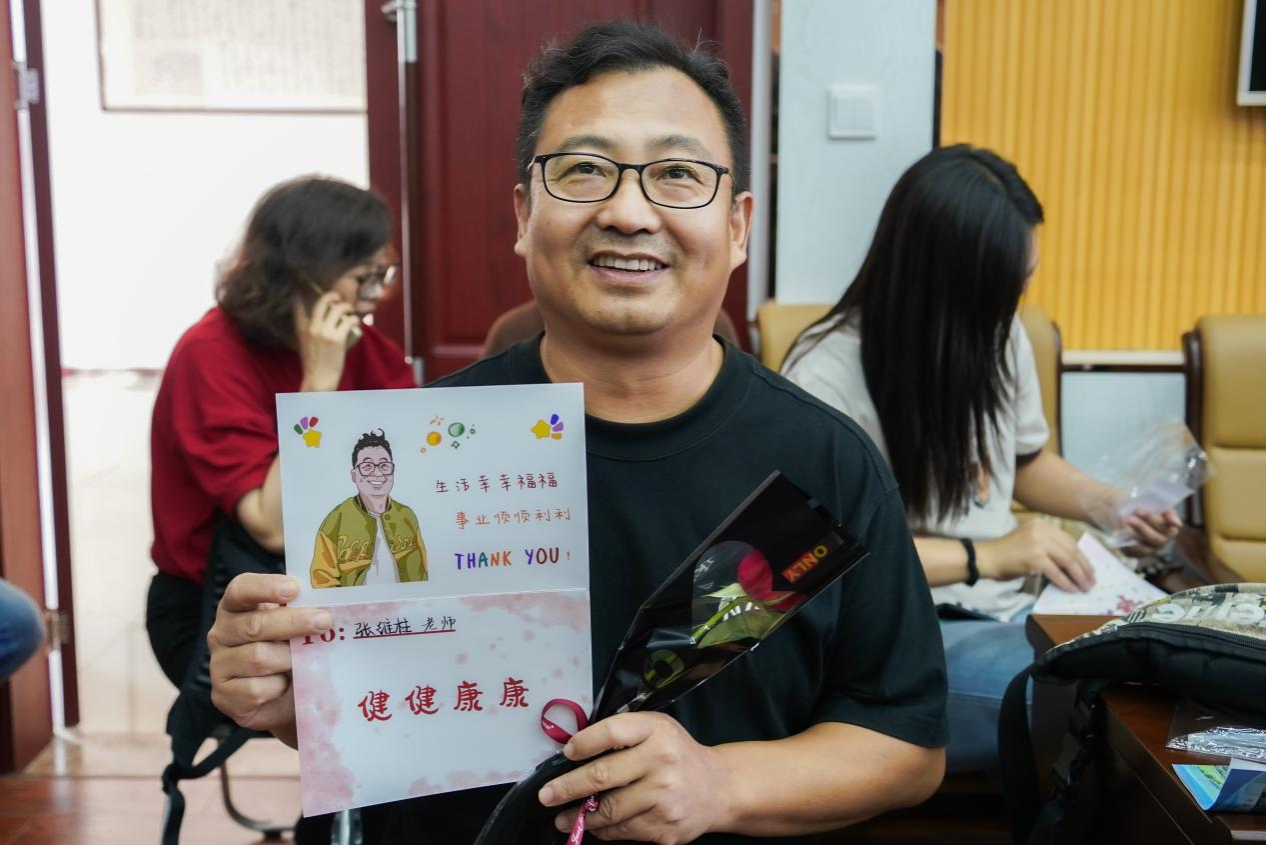 生活幸幸福福
事业顺顺利利
THANK YOU!
To: 张维柱 老师
健健康康
ONLY